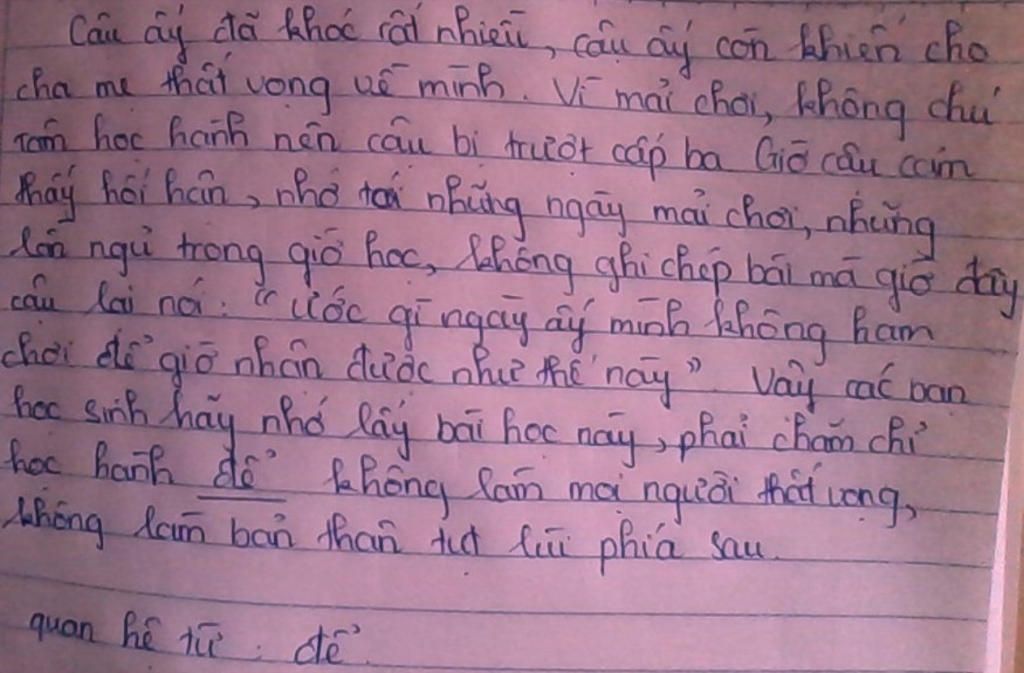 Cậu ấy đã khóc rất nhiều, cậu ấy còn khiến cho
cha mẹ thất vọng về mình. Vì mải chơi, không chú
tâm học hành nên cậu bị trượt cấp ba Giờ cậu cảm
thấy hối hận, nhớ tới những ngày mải chơi, những
lần ngủ trong giờ học, không ghi chép bài mà giờ đây
cậu lại nói: "Ước gì ngày ấy mình không ham
chơi để giờ nhận được như thế này" Vậy các bạn
học sinh hãy nhớ lấy bài học này, phải chăm chỉ
học hành để không làm mọi người thất vọng,
không làm bản thân tụt lùi phía sau.
quan hệ từ: để.